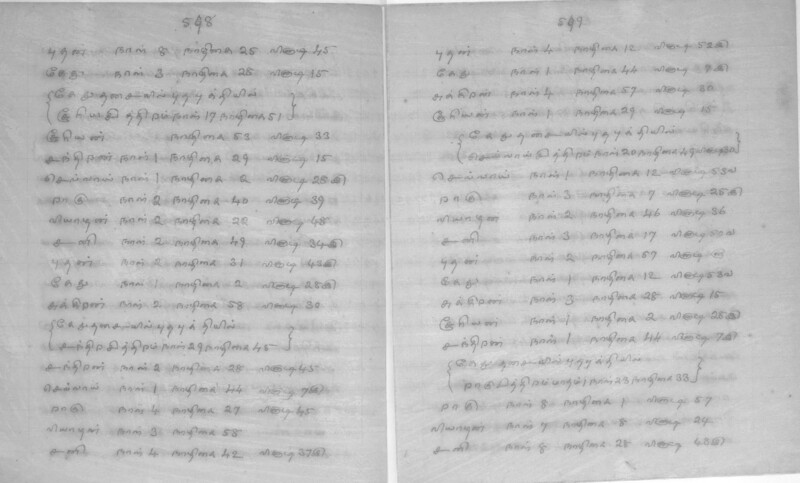 548
புதன் நாள் 8 நாழிகை 25 வினாடி 45
கேது நாள் 3 நாழிகை 25 வினாடி 15
{கேது தசையில் புத புத்தியில்
சூரியசித்திரம் நாள் 17 நாழிகை 51}
சூரியன் நாழிகை 53 வினாடி 33
சந்திரன் நாள் 1 நாழிகை 29 வினாடி 15
செவ்வாய் நாள் 1 நாழிகை 2 வினாடி 28இ
ராகு நாள் 2 நாழிகை 40 வினாடி 39
வியாழன் நாள் 2 நாழிகை 22 வினாடி 48
சனி நாள் 2 நாழிகை 49 வினாடி 34இ
புதன் நாள் 2 நாழிகை 31 வினாடி 43இ
கேது நாள் 1 நாழிகை 2 வினாடி 28இ
சுக்கிரன் நாள் 2 நாழிகை 58 வினாடி 30
{கேது தசையில் புத புத்தியில்
சந்திரசித்திரம் நாள் 29 நாழிகை 45}
சந்திரன் நாள் 2 நாழிகை 28 வினாடி 45
செவ்வாய் நாள் 1 நாழிகை 44 வினாடி 7இ
ராகு நாள் 4 நாழிகை 27 வினாடி 45
வியாழன் நாள் 3 நாழிகை 58
சனி நாள் 4 நாழிகை 42 வினாடி 37இ
549
புதன் நாள் 4 நாழிகை 12 வினாடி 52இ
கேது நாள் 1 நாழிகை 44 வினாடி 7இ
சுக்கிரன் நாள் 4 நாழிகை 57 வினாடி 30
சூரியன் நாள் 1 நாழிகை 29 வினாடி 15
{கேது தசையில் புத புத்தியில்
செவ்வாய்சித்திரம் நாள் 20 நாழிகை 49}
செவ்வாய் நாள் 1 நாழிகை 12 வினாடி
ராகு நாள் 3 நாழிகை 7 வினாடி 25இ
வியாழன் நாள் 2 நாழிகை 46 வினாடி 36
சனி நாள் 3 நாழிகை 17 வினாடி
புதன் நாள் 2 நாழிகை 57 வினாடி
கேது நாள் 1 நாழிகை 12 வினாடி
சுக்கிரன் நாள் 3 நாழிகை 28 வினாடி 15
சூரியன் நாள் 1 நாழிகை 2 வினாடி 28இ
சந்திரன் நாள் 1 நாழிகை 44 வினாடி 7இ
{கேது தசையில் புத புத்தியில்
ராகுசித்திரம் மாதம் 1 நாள் 23 நாழிகை 33}
ராகு நாள் 8 நாழிகை 1 வினாடி 57
வியாழன் நாள் 7 நாழிகை 8 வினாடி 24
சனி நாள் 8 நாழிகை 28 வினாடி 43இ